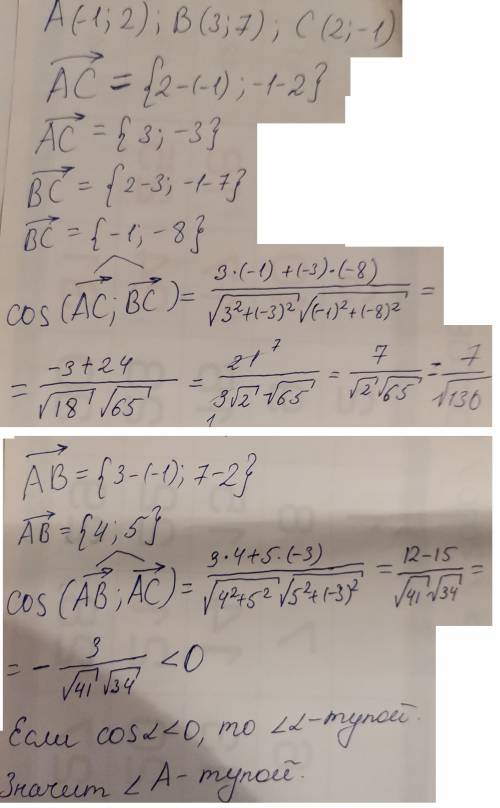 A(-1; 2); B(3; 7); C(2; -1)
→AC = {2-(-1); -1-2}
→AC = {3; -3}
→BC = {2-3; -1-7}
→BC = {-1; -8}
cos(→AC; →BC) = (3·(-1)+(-3)·(-8))/(√(3²+(-3)²) √((-1)²+(-8)²)) =
= (-3+24)/(√18 √65) = 21 7/(3√2 √65) 1 = 7/(√2 √65) = 7/√130
→AB = {3-(-1); 7-2}
→AB = {4; 5}
cos(→AB; →AC) = (3·4+5·(-3))/(√(4²+5²) √(5²+(-3)²)) = (12-15)/(√41 √34) =
= - 3/(√41 √34) < 0
Если cosα<0, то ∠α-тупой.
Значит ∠A-тупой.